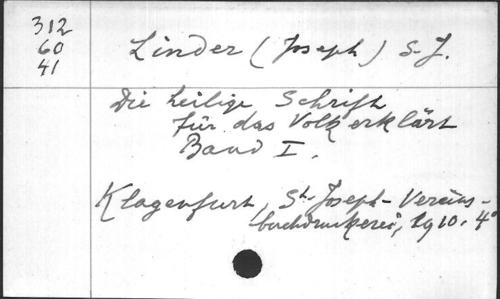 312
60
41
Linder (Joseph) S.J.
Die heilige Schrift
für das Volk erklärt
Band I.
Klagenfurt, St. Joseph-Vereins-
buchdruckerei, 1910. 4°